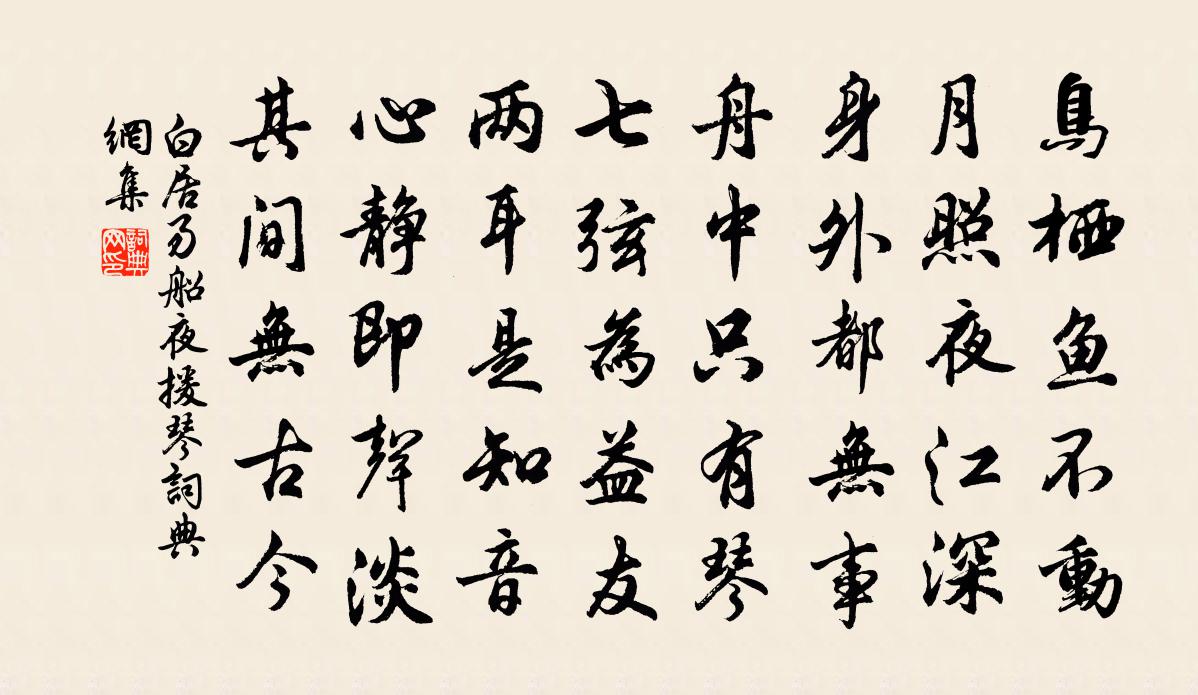 鳥栖鱼不動
月照夜江深
身外都無事
舟中只有琴
七弦為益友
两耳是知音
心静即聲淡
其間無古今
白居易船夜援琴詞典
網集
詞典
网印